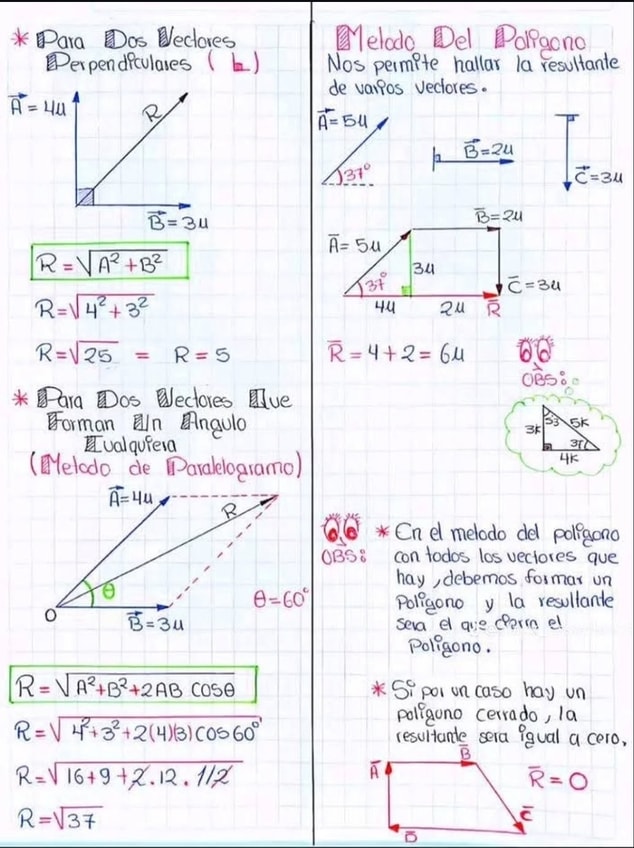 * Para Dos Vectores
Perpendiculares (⊾)
A⃗ = 4u
R
B⃗ = 3u
R = √A² + B²
R = √4² + 3²
R = √25 = R = 5
* Para Dos Vectores Que
Forman Un Angulo
Cualquiera
(Metodo de Paralelogramo)
A⃗ = 4u
R
θ
O
B⃗ = 3u
θ = 60°
R = √A² + B² + 2AB COSθ
R = √4² + 3² + 2(4)(3) COS 60°
R = √16 + 9 + 2 . 12 . 1/2
R = √37
Metodo Del Poligono
Nos permite hallar la resultante
de varios vectores.
A⃗ = 5u
37°
B⃗ = 2u
C⃗ = 3u
B̅ = 2u
A̅ = 5u
3u
37°
C̅ = 3u
4u
2u
R̅
R̅ = 4 + 2 = 6u
OBS:
53
5K
3K
37
4K
OBS:
* En el metodo del poligono
con todos los vectores que
hay, debemos formar un
Poligono y la resultante
sera el que cierra el
Poligono.
* Si por un caso hay un
poligono cerrado, la
resultante sera igual a cero.
B̅
A̅
R̅ = O
C̅
D̅